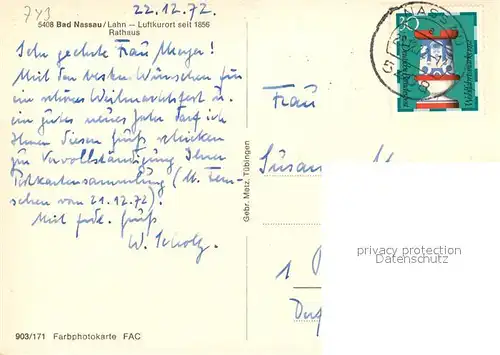 743
22.12.72.
5408 Bad Nassau/Lahn — Luftkurort seit 1856
Rathaus
Sehr geehrte Frau Meyer!
Mit den besten Wünschen für
ein schönes Weihnachtsfest u.
ein gutes neues Jahr darf ich
Ihnen diesen Gruß schicken
zur Vervollständigung Ihrer
Postkartensammlung (lt. Fern-
sehen vom 21.12.72).
Mit frdl. Gruß
W. Scholz.
903/171 Farbphotokarte FAC
Gebr. Metz, Tübingen
NASSAU
30
Deutsche Bundespost
Wohlfahrtsmarke
Frau
Susan
1
privacy protection
Datenschutz